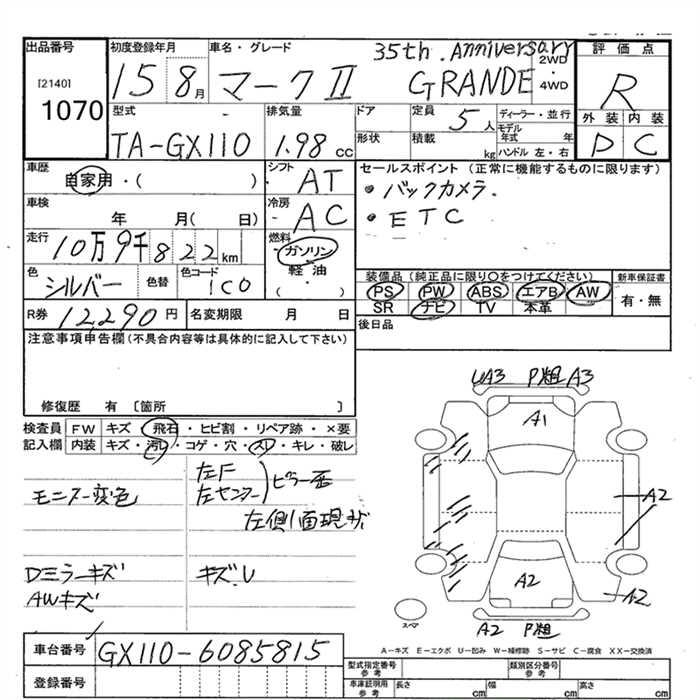 出品番号
[2140]
1070
初度登録年月
15 8月
車名・グレード
マークⅡ
35th. Anniversary
GRANDE
2WD
・
4WD
評価点
R
外装 内装
D C
型式
TA-GX110
排気量
1.98 cc
ドア
形状
定員
5人
積載
kg
ディーラー・並行
モデル年式 年
ハンドル 左・右
車歴
自家用・( )
シフト
AT
セールスポイント (正常に機能するものに限ります)
・バックカメラ.
・ETC
車検
年 月( 日)
冷房
AC
走行
10万9千822km
燃料
ガソリン
軽油
( )
色
シルバー
色替
色コード
1C0
装備品(純正品に限り○をつけてください)
PS PW ABS エアB AW
SR ナビ TV 本革
新車保証書
有・無
R券 12,290円
名変期限 月 日
後日品
注意事項申告欄(不具合内容等は具体的に記入して下さい)
修復歴 有 〔箇所 〕
検査員記入欄
FW キズ・飛石・ヒビ割・リペア跡・×要
内装 キズ・汚レ・コゲ・穴・スレ・キレ・破レ
モニター変色
左F
左センター
ピラー歪
左側面現状
Dミラーキズ
AWキズ
キズ.U
UA3 P粗 A3
A1
A2
A2
A2
A2 P粗
スペア
A-キズ E-エクボ U-凹み W-補修跡 S-サビ C-腐食 XX-交換済
車台番号
GX110-6085815
登録番号
型式指定番号
参考
類別区分番号
参考
車庫証明用
参考
長さ cm
幅 cm
高さ cm